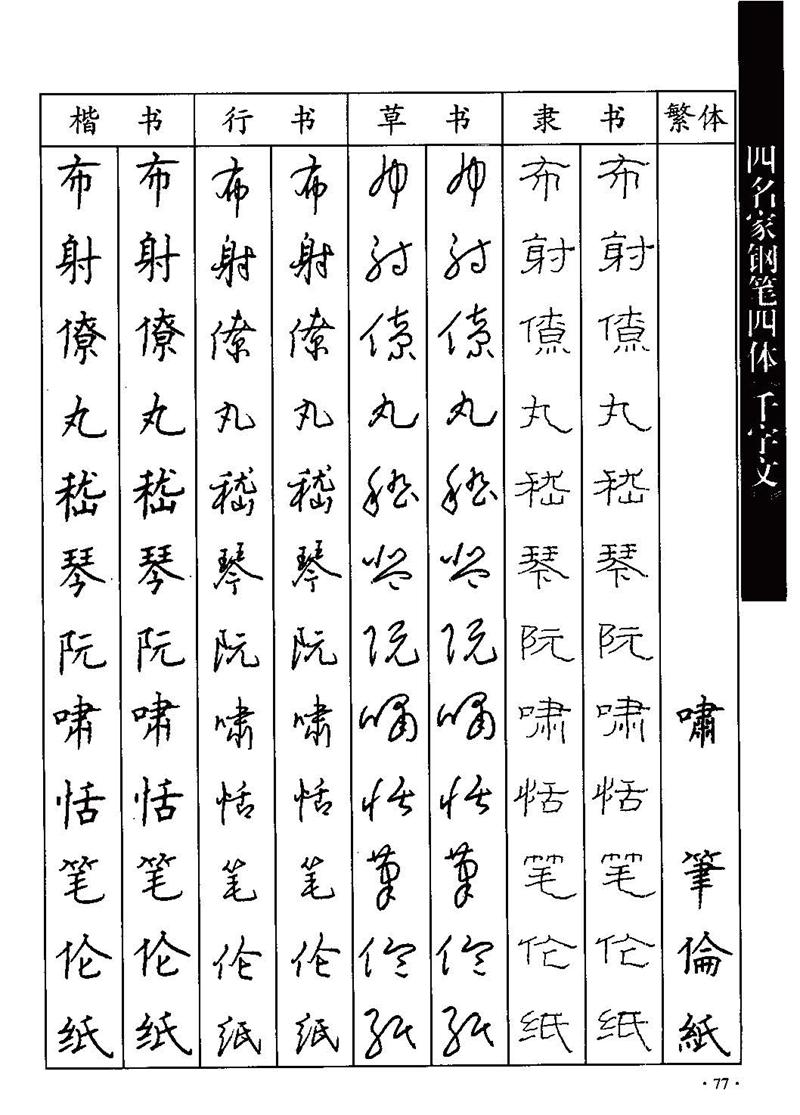 楷书 行书 草书 隶书 繁体
布 布 布 布 布 布 布 布
射 射 射 射 射 射 射 射
僚 僚 僚 僚 僚 僚 僚 僚
丸 丸 丸 丸 丸 丸 丸 丸
嵇 嵇 嵇 嵇 嵇 嵇 嵇 嵇
琴 琴 琴 琴 琴 琴 琴 琴
阮 阮 阮 阮 阮 阮 阮 阮
啸 啸 啸 啸 啸 啸 啸 啸 嘯
恬 恬 恬 恬 恬 恬 恬 恬
笔 笔 笔 笔 笔 笔 笔 笔 筆
伦 伦 伦 伦 伦 伦 伦 伦 倫
纸 纸 纸 纸 纸 纸 纸 纸 紙
四名家钢笔四体千字文
·77·